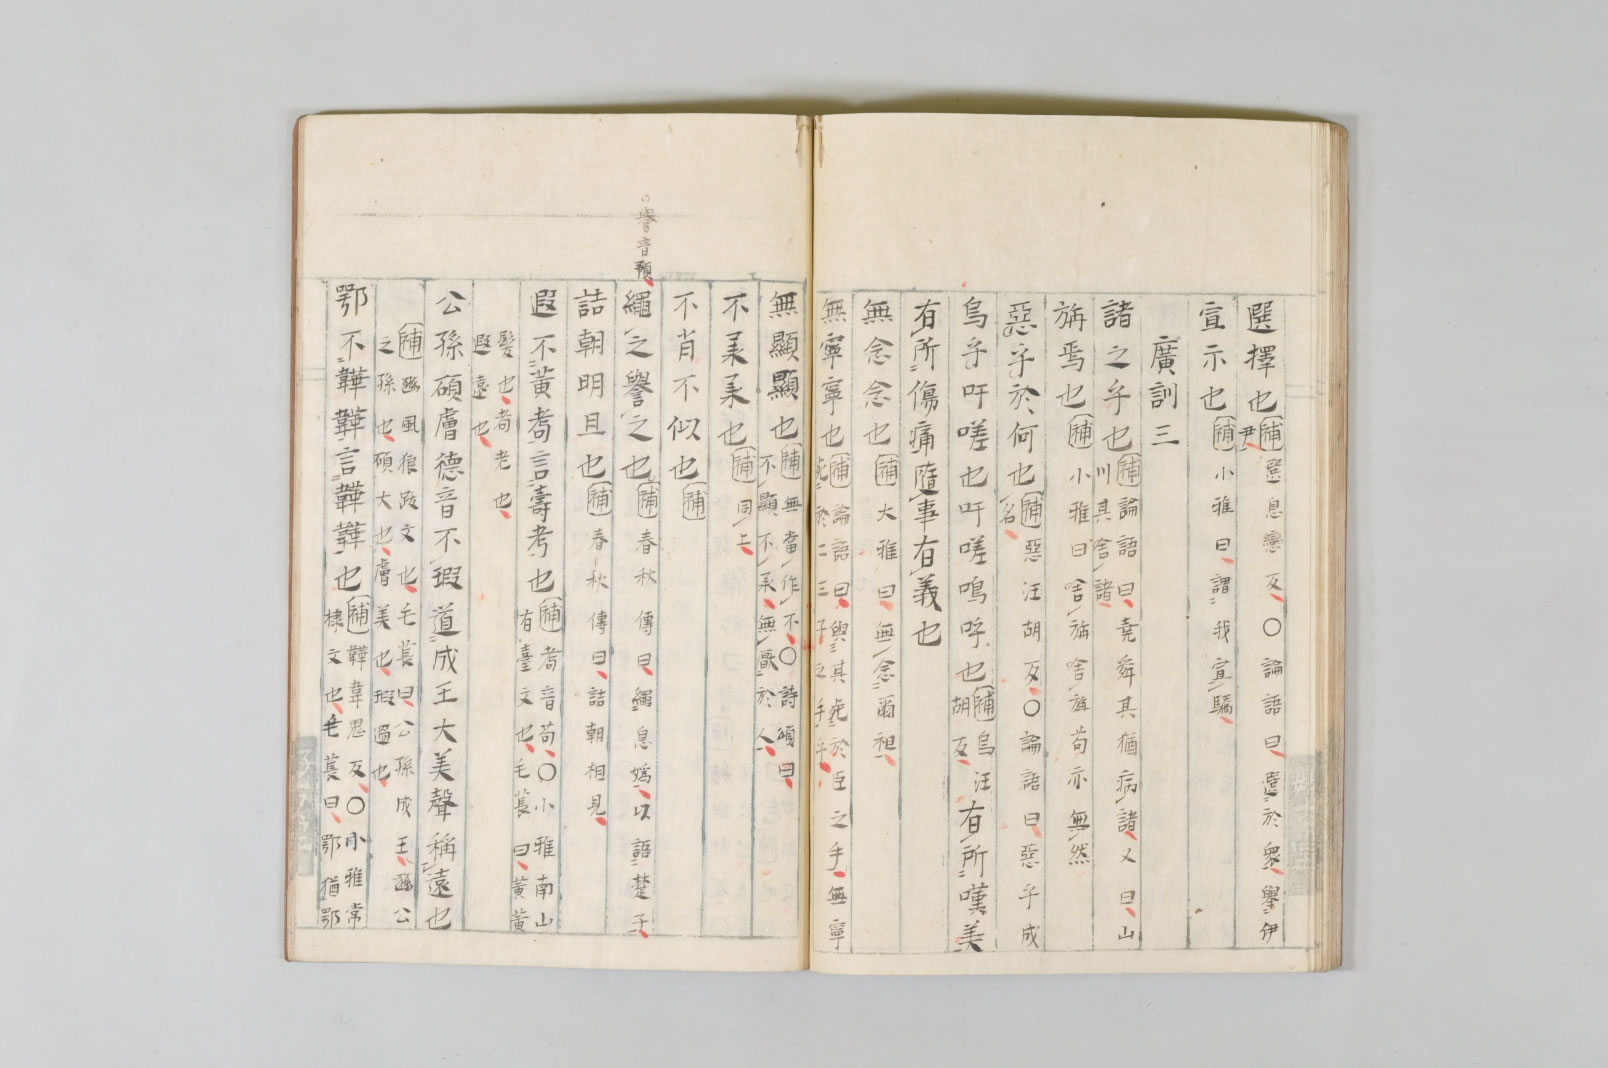 選擇也〔補〕選息戀反〇論語曰選於衆舉伊尹
宣示也〔補〕小雅曰謂我宣驕
廣訓三
諸之乎也〔補〕論語曰堯舜其猶病諸又曰山川其舍諸
旃焉也〔補〕小雅曰舍旃舍旃苟亦無然
惡乎於何也〔補〕惡汪胡反〇論語曰惡乎成名
烏乎吁嗟也吁嗟嗚呼也〔補〕烏汪胡反有所嘆美
有所傷痛隨事有義也
無念念也〔補〕大雅曰無念爾祖
無寧寧也〔補〕論語曰與其死於臣之手無寧死於二三子之手乎
無顯顯也〔補〕無當作不〇詩頌曰不顯不承無斁於人
不承承也〔補〕同上
不肖不似也〔補〕
譽音預
繩之譽之也〔補〕春秋傳曰繩息嬀以語楚子
詰朝明旦也〔補〕春秋傳曰詰朝相見
遐不黃耇言壽考也〔補〕耇音苟〇小雅南山有臺文也毛萇曰黃黃
髮也耇老也遐遠也
公孫碩膚德音不瑕道成王大美聲稱遠也
〔補〕豳風狼跋文也毛萇曰公孫成王豳公之孫也碩大也膚美也瑕過也
鄂不韡韡言韡韡也〔補〕韡韋思反〇小雅常棣文也毛萇曰鄂猶鄂